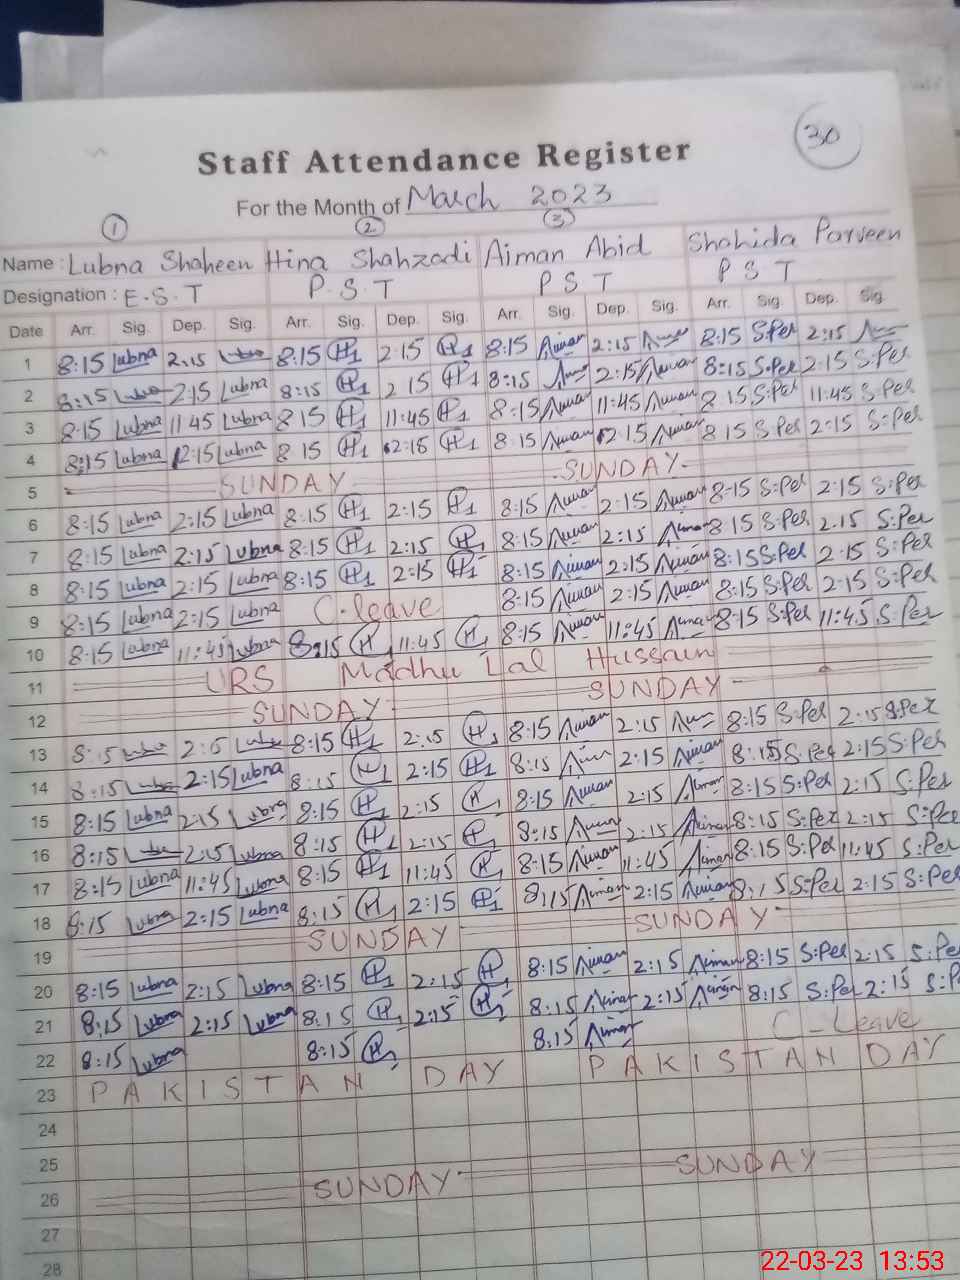 30
Staff Attendance Register
For the Month of March 2023
1 2 3
Name : Lubna Shaheen Hina Shahzadi Aiman Abid Shahida Parveen
Designation : E.S.T P.S.T P S T P S T
Date Arr. Sig. Dep. Sig. Arr. Sig. Dep. Sig. Arr. Sig. Dep. Sig. Arr. Sig. Dep. Sig.
1 8:15 Lubna 2:15 8:15 H1 2 15 H1 8:15 Aiman 2:15 8:15 S.Per 2:15
2 8:15 2:15 Lubna 8:15 H1 2 15 H1 8:15 2:15 Aiman 8:15 S.Per 2:15 S.Per
3 8:15 Lubna 11 45 Lubna 8 15 H1 11:45 H1 8:15 Aiman 11:45 Aiman 8 15 S:Per 11:45 S.Per
4 8:15 Lubna 2:15 Lubna 8 15 H1 2:15 H1 8 15 Aiman 2 15 Aiman 8 15 S.Per 2:15 S.Per
5 SUNDAY SUNDAY
6 8:15 Lubna 2:15 Lubna 8:15 H1 2:15 H1 8:15 Aiman 2:15 Aiman 8-15 S:Per 2:15 S:Per
7 8:15 Lubna 2:15 Lubna 8:15 H1 2:15 H1 8:15 Aiman 2:15 Aiman 8 15 S:Per 2.15 S:Per
8 8:15 Lubna 2:15 Lubna 8:15 H1 2:15 H1 8:15 Aiman 2:15 Aiman 8:15 S:Per 2:15 S:Per
9 8:15 Lubna 2:15 Lubna C-leave 8:15 Aiman 2:15 Aiman 8:15 S:Per 2:15 S:Per
10 8:15 Lubna 11:45 Lubna 8:15 H 11:45 H 8:15 Aiman 11:45 Aiman 8:15 S:Per 11:45 S:Per
11 URS Madhu Lal Hussain
12 SUNDAY SUNDAY
13 8:15 8:15 H1 2:15 H1 8:15 Aiman 2:15 8:15 S:Per 2:15 S:Per
14 8:15 2:15 Lubna 8:15 H1 2:15 H1 8:15 2:15 Aiman 8:15 S:Per 2:15 S:Per
15 8:15 Lubna 2:15 Lubna 8:15 H1 2:15 H 8:15 Aiman 2:15 Aiman 8:15 S:Per 2:15 S.Per
16 8:15 2:15 Lubna 8:15 H1 2:15 H 8:15 2:15 Aiman 8:15 S:Per 2:15 S:Per
17 8:15 Lubna 11:45 Lubna 8:15 H1 11:45 H 8:15 Aiman 11:45 Aiman 8:15 S:Per 11:45 S.Per
18 8:15 Lubna 2:15 Lubna 8:15 H1 2:15 H1 8:15 Aiman 2:15 Aiman 8:15 S:Per 2:15 S:Per
19 SUNDAY SUNDAY
20 8:15 Lubna 2:15 Lubna 8:15 H1 2:15 H1 8:15 Aiman 2:15 Aiman 8:15 S:Per 2:15 S:Per
21 8:15 Lubna 2:15 Lubna 8:15 H1 2:15 H1 8:15 Aiman 2:15 Aiman 8:15 S:Per 2:15 S:P
22 8:15 Lubna 8:15 H1 8:15 Aiman C-Leave
23 PAKISTAN DAY PAKISTAN DAY
24
25
26 SUNDAY SUNDAY
27
28
22-03-23 13:53